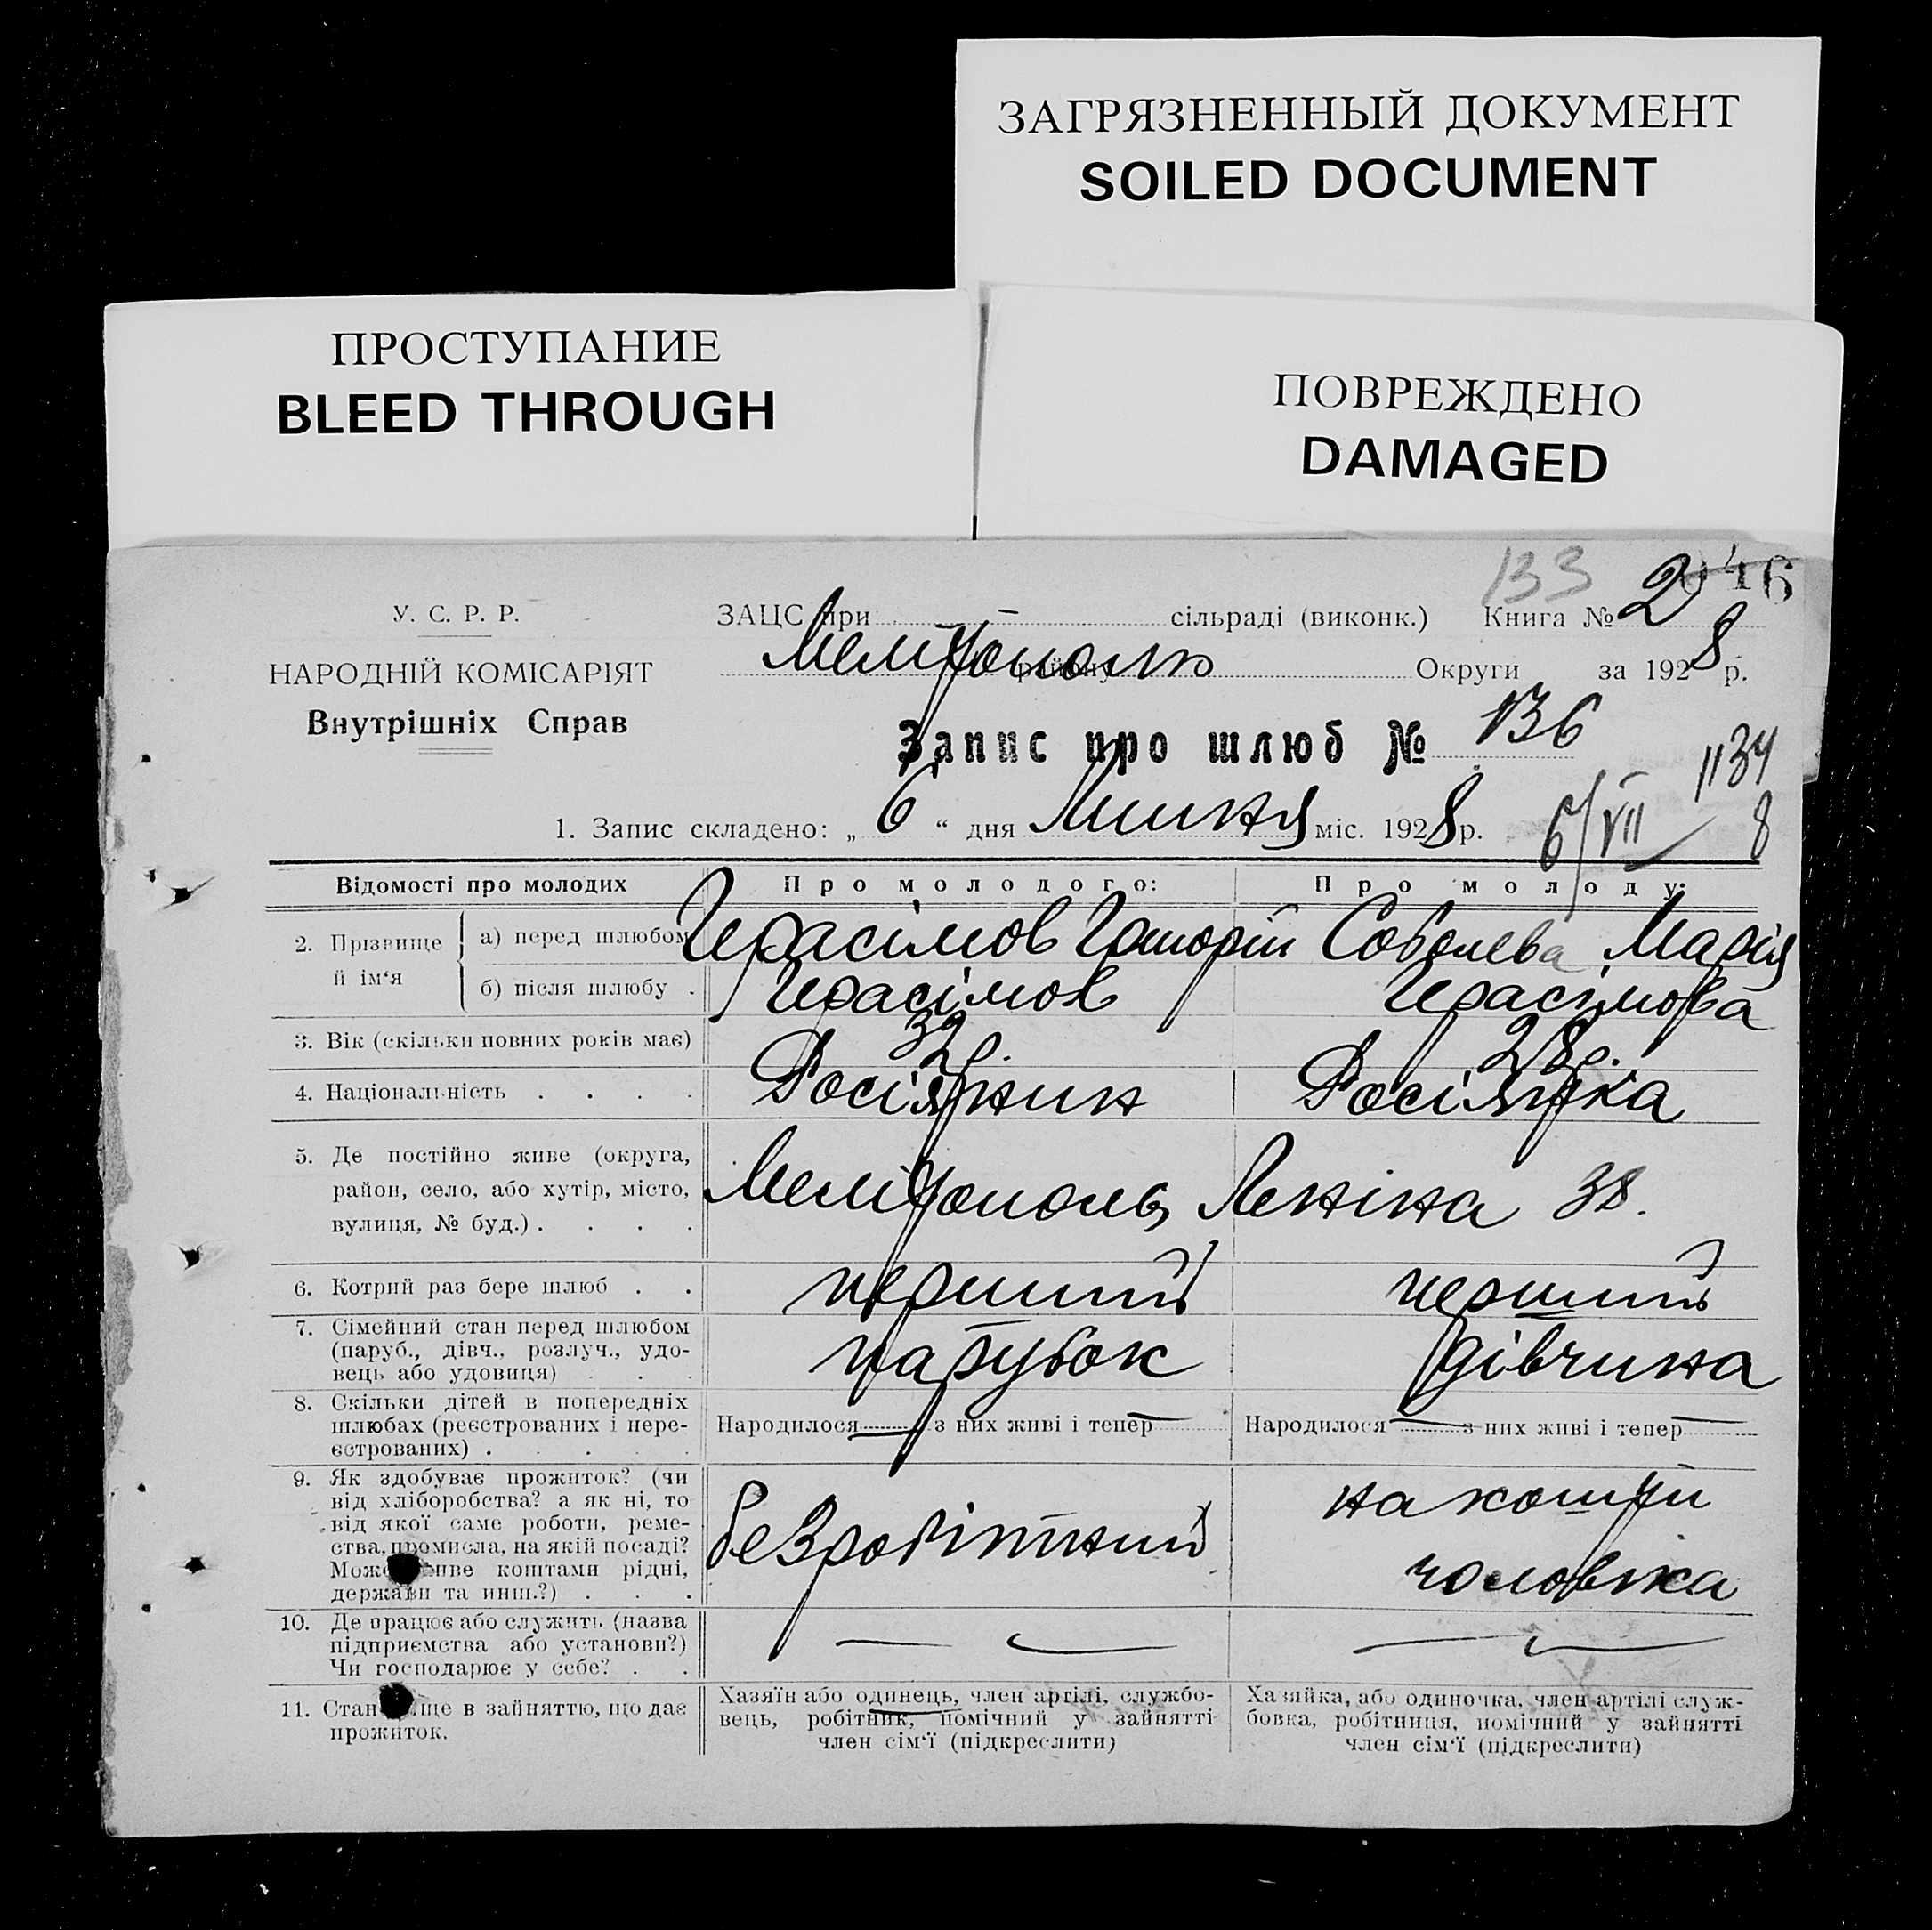 ЗАГРЯЗНЕННЫЙ ДОКУМЕНТ
SOILED DOCUMENT
ПРОСТУПАНИЕ
BLEED THROUGH
ПОВРЕЖДЕНО
DAMAGED
133
У. С. Р. Р.
НАРОДНІЙ КОМІСАРІЯТ
Внутрішніх Справ
ЗАЦС при — сільраді (виконк.) Книга № 2
району Округи за 1928 р.
Запис про шлюб № 136
1134
1. Запис складено: „ 6 “ дня Липня міс. 1928 р.
6/VII 8
Відомості про молодих Про молодого: Про молоду:
2. Прізвище й ім‘я
а) перед шлюбом Герасімов Григорій Соболева Марія
б) після шлюбу . Герасімов Герасімова
3. Вік (скільки повних років має) 32 р. 28 р.
4. Національність . . . . Росіянин Росіянка
5. Де постійно живе (округа,
район, село, або хутір, місто,
вулиця, № буд.) . . . .
Мелітополь Леніна 38.
6. Котрий раз бере шлюб . . перший перший
7. Сімейний стан перед шлюбом
(паруб., дівч., розлуч., удо-
вець або удовиця) . . .
парубок дівчина
8. Скільки дітей в попередніх
шлюбах (реєстрованих і нере-
єстрованих) . . . . .
Народилося — з них живі і тепер — Народилося — з них живі і тепер —
9. Як здобуває прожиток? (чи
від хліборобства? а як ні, то
від якої саме роботи, реме-
ства, промисла, на якій посаді?
Може живе коштами рідні,
держави та инш.?) . . .
безробітний
на кошти
чоловіка
10. Де працює або служить (назва
підприємства або установи?)
Чи господарює у себе? . .
— — — —
11. Становище в зайняттю, що дає
прожиток.
Хазяїн або одинець, член артілі, службо-
вець, робітник, помічний у зайнятті
член сім‘ї (підкреслити)
Хазяйка, або одиночка, член артілі служ-
бовка, робітниця, помічний у зайнятті
член сім‘ї (підкреслити)